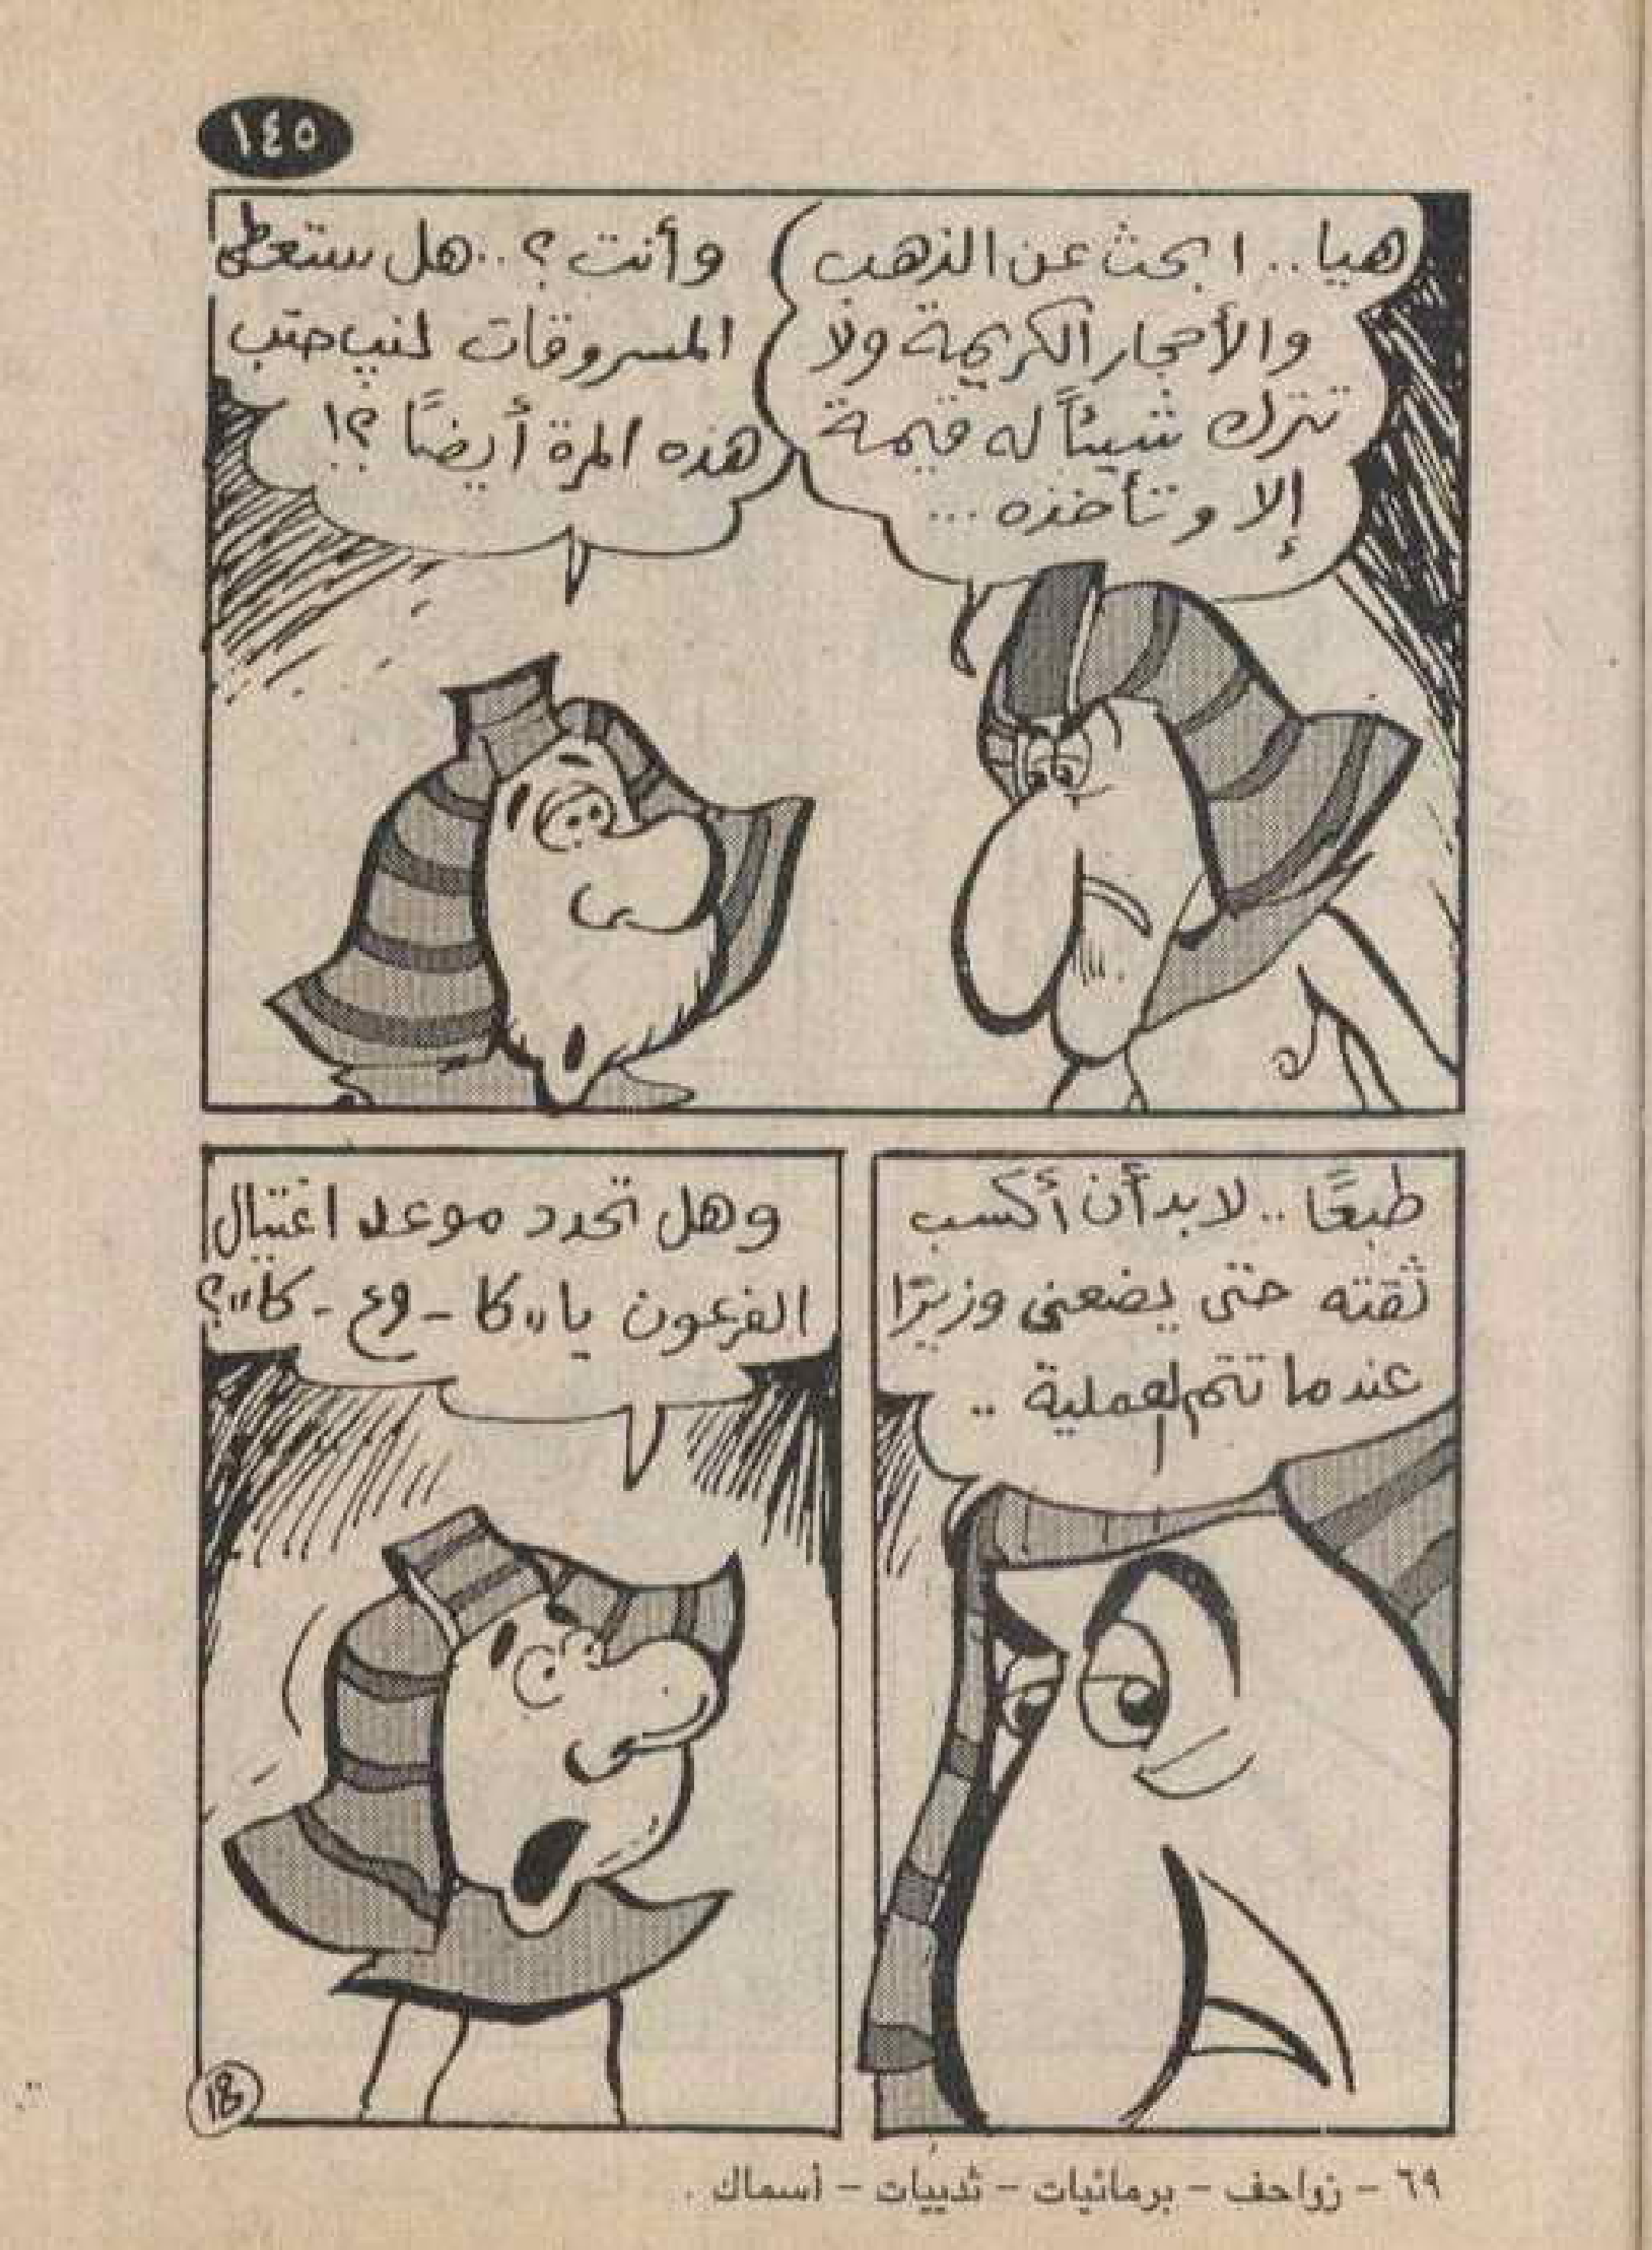 ١٤٥
هيا.. ابحث عن الذهب
والأحجار الكريمة ولا
تترك شيئاً له قيمة
إلا وتأخذه...
وأنت؟.. هل ستعطى
المسروقات لنب حتب
هذه المرة أيضاً؟!
طبعًا.. لابد أن أكسب
ثقته حتى يضعنى وزيرًا
عندما تتم العملية..
وهل تحدد موعد اغتيال
الفرعون يا "كا - وع - كا"؟
18
٦٩ - زواحف - برمائيات - ثدييات - أسماك.